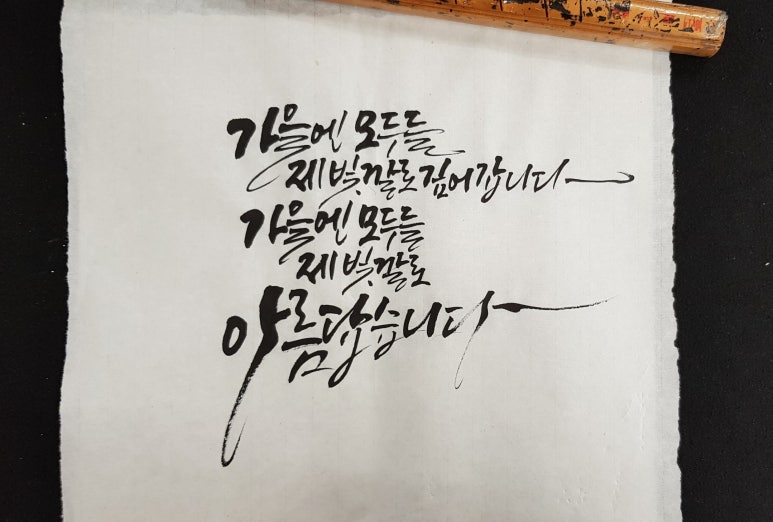 가을엔 모두들
제 빛깔로 짙어갑니다
가을엔 모두들
제 빛깔로
아름답습니다